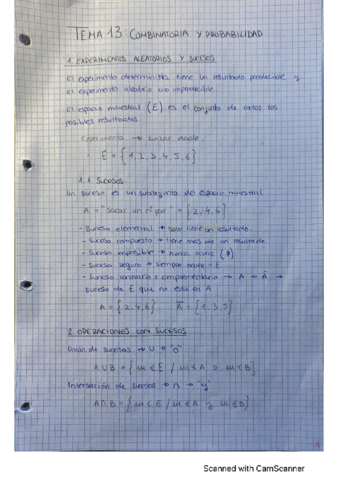 TEMA 13: COMBINATORIA Y PROBABILIDAD
1. EXPERIMENTOS ALEATORIOS Y SUCESOS
El experimento determinista tiene un resultado predecible y
el experimento aleatorio uno impredecible.
El espacio muestral (E) es el conjunto de todos los
posibles resultados
Experimento → lanzar dado
E = {1, 2, 3, 4, 5, 6}
1.1 Sucesos
Un suceso es un subconjunto del espacio muestral
A = "sacar un nº par" = {2, 4, 6}
- Suceso elemental → solo tiene un resultado.
- Suceso compuesto → tiene más de un resultado
- Suceso imposible → nunca ocurre (Ø)
- Suceso seguro → siempre ocurre = E
- Suceso contrario o complementario → A → Ā →
suceso de E que no está en A
A = {2, 4, 6} Ā = {1, 3, 5}
2. OPERACIONES CON SUCESOS
Unión de sucesos → U → "o"
A U B = { / }
Intersección de sucesos → ∩ → "y"
A ∩ B = { / y }
Scanned with CamScanner